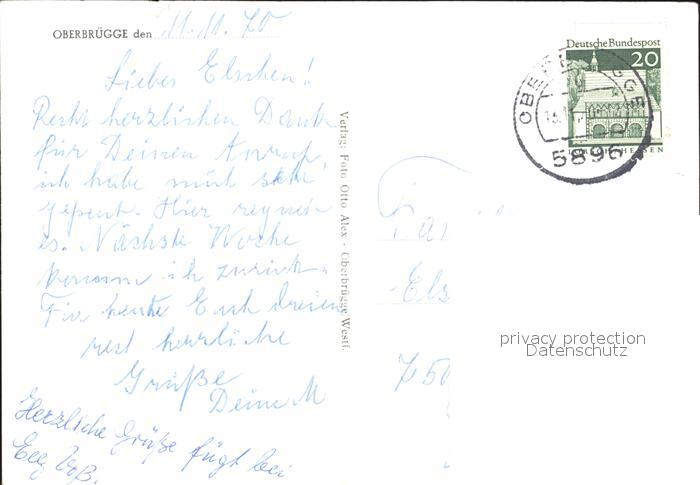 OBERBRÜGGE den 11.11.70
Liebes Elschen!
Recht herzlichen Dank
für Deinen Anruf,
ich habe mich sehr
gefreut. Hier regnet
es. Nächste Woche
komm ich zurück.
Für heute Euch dreien
recht herzliche
Grüße
Deine M
Herzliche Grüße fügt bei
Voß.
Verlag: Foto Otto Alex - Oberbrügge/Westf.
Deutsche Bundespost
20
5896
Els
privacy protection
Datenschutz